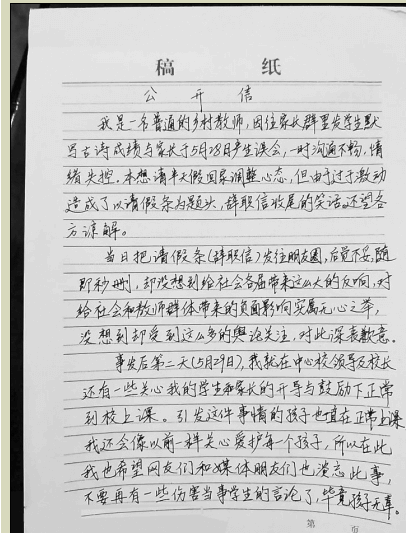 稿 纸
公 开 信
我是一名普通的乡村教师，因往家长群里发学生默
写古诗成绩与家长于5月28日产生误会，一时沟通不畅，情
绪失控。本想请半天假回家调整心态，但由于过于激动
造成了以请假条为题头，辞职信收尾的笑话，还望各
方谅解。
当日把请假条（辞职信）发往朋友圈，后觉不妥，随
即秒删，却没想到给社会各届带来这么大的反响，对
给社会和教师群体带来的负面影响实属无心之举，
没想到却受到这么多的舆论关注，对此深表歉意。
事发后第二天（5月29日），我就在中心校领导及校长
还有一些关心我的学生和家长的开导与鼓励下正常
到校上课。引发这件事情的孩子也直在正常上课
我还会像以前一样关心爱护每个孩子，所以在此
我也希望网友们和媒体朋友们也淡忘此事，
不要再有一些伤害当事学生的言论了，毕竟孩子无辜。
第 页